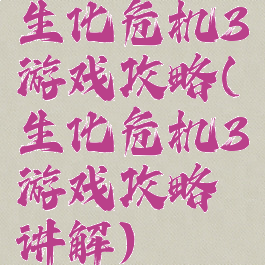 生化危机3
游戏攻略(
生化危机3
游戏攻略
讲解)